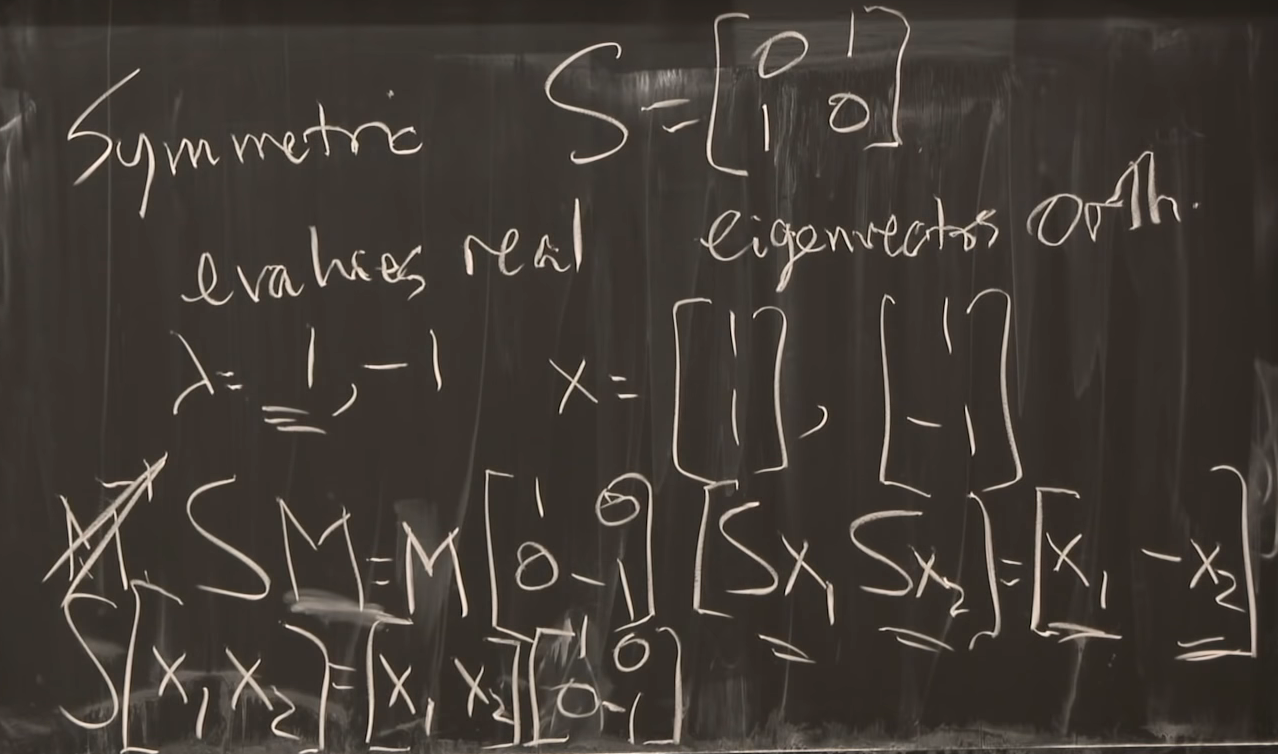 Symmetric S = [0 1; 1 0]
evalues real eigenvectors orth.
λ = 1, -1 x = [1; 1], [1; -1]
S M = M [1 0; 0 -1] [Sx₁ Sx₂] = [x₁ -x₂]
S [x₁ x₂] = [x₁ x₂] [1 0; 0 -1]